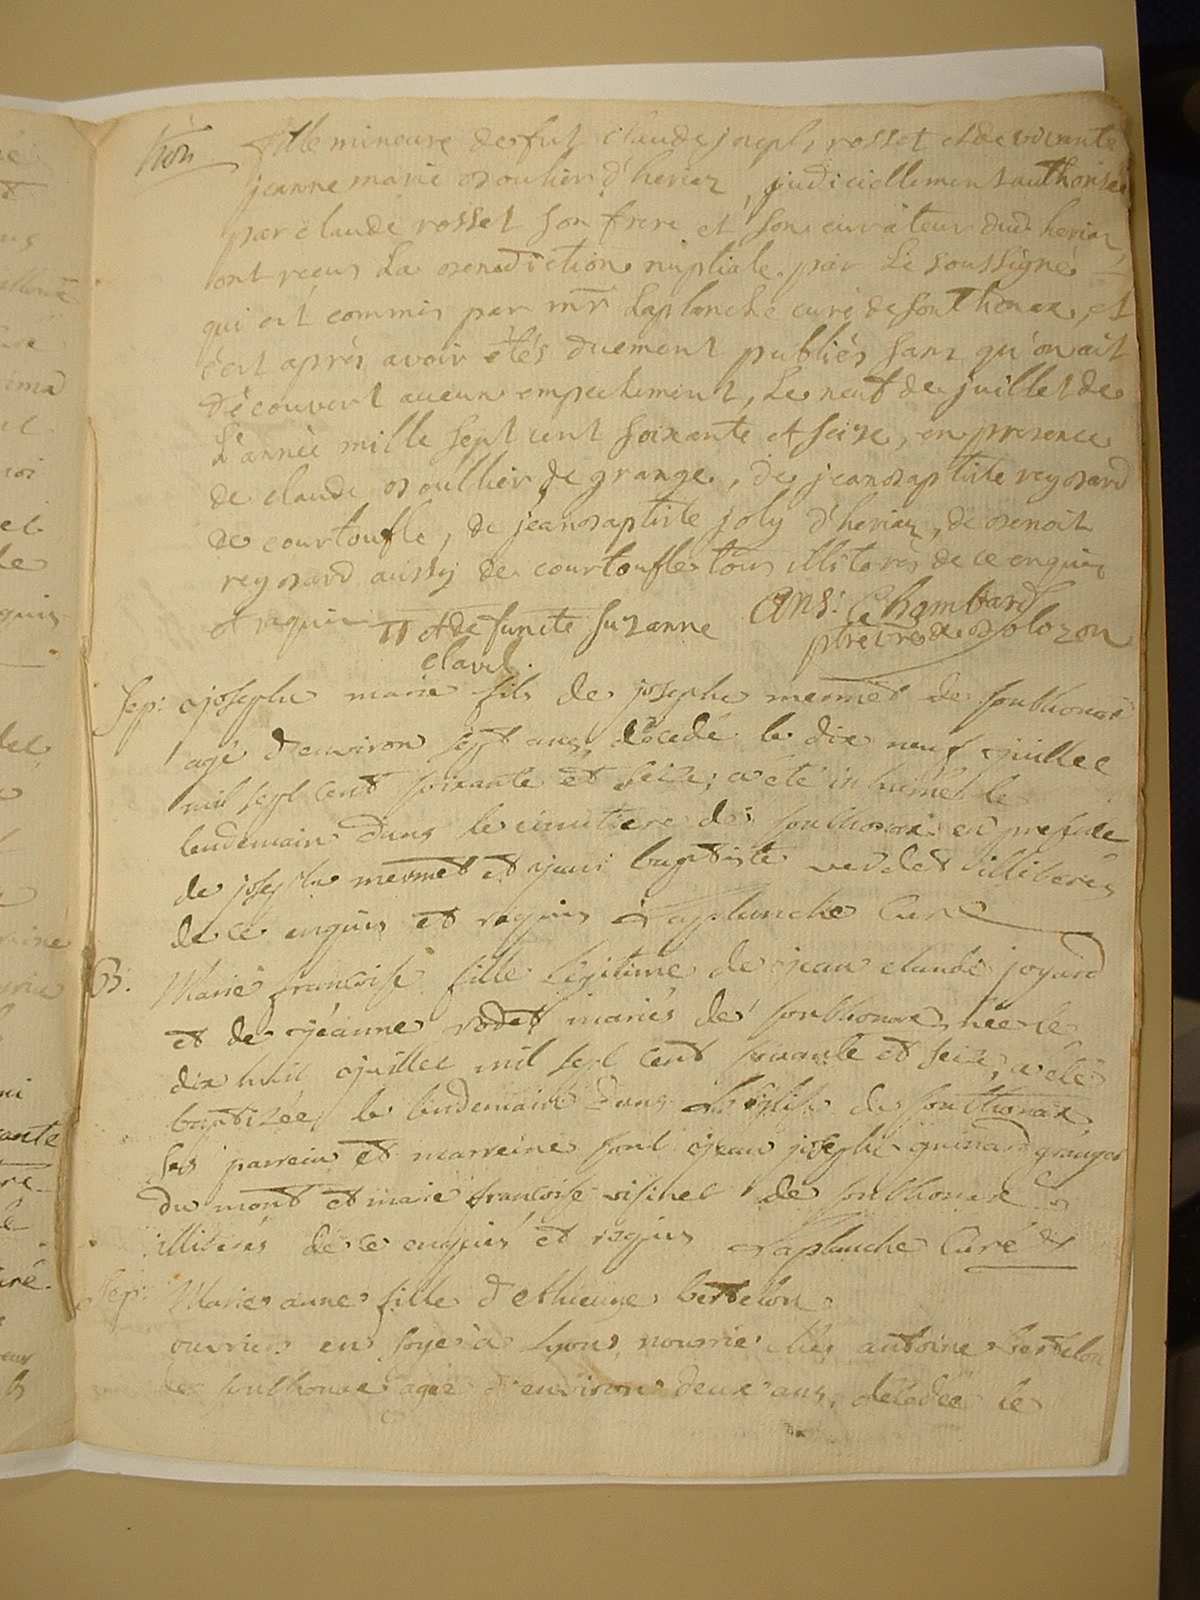 fille mineure de fut claude joseph rosset et de vivante
jeanne marie bouhier d'heriaz judiciellement authorisée
par claude rosset son frere et son curateur dud heriaz
ont recus La benediction nuptiale par Le soussigné
qui est commis par mr Laplanche curé de sonthonax, et
c'est aprés avoir étés duement publiés sans qu'on ait
découvert aucun empechement, Le neuf de juillet de
L'année mille sept cent soixante et seize, en presence
de claude boullier de grange, de jean baptiste reybard
de courtoufle, de jean baptiste joly d'heriaz, de benoit
reybard aussy de courtoufle tous illiterés de ce enquis
et requis ++ et de functe suzanne ans: Chambard
clavel. ptre vre de bolozon
Sep: joseph marie fils de joseph mermet de sonthonax
agé d'environ sept ans, décedé le dix neuf juillet
mil sept cent soixante et seize, a été inhumé le
lendemain dans le cimetiere de sonthonax en presence
de joseph mermet et jean baptiste verdet illiterés
de ce enquis et requis Laplanche Curé
B: Marie francoise fille Légitime de jean claude joyard
et de jéanne rodet mariés de sonthonax, née le
dix huit juillet mil sept cent soixante et seize, a été
baptizée le lendemain dans L'église de sonthonax
ses parrein et marreine sont jean joseph guinard granger
du mont et marie francoise visinet de sonthonax
illiterés de ce enquis et requis Laplanche Curé
Sep: Marie anne fille d'ethienne bertelon
ouvrier en soye à Lyon, nourrie ches antoine bertelon
de sonthonax agée d'environ deux ans, décedée le